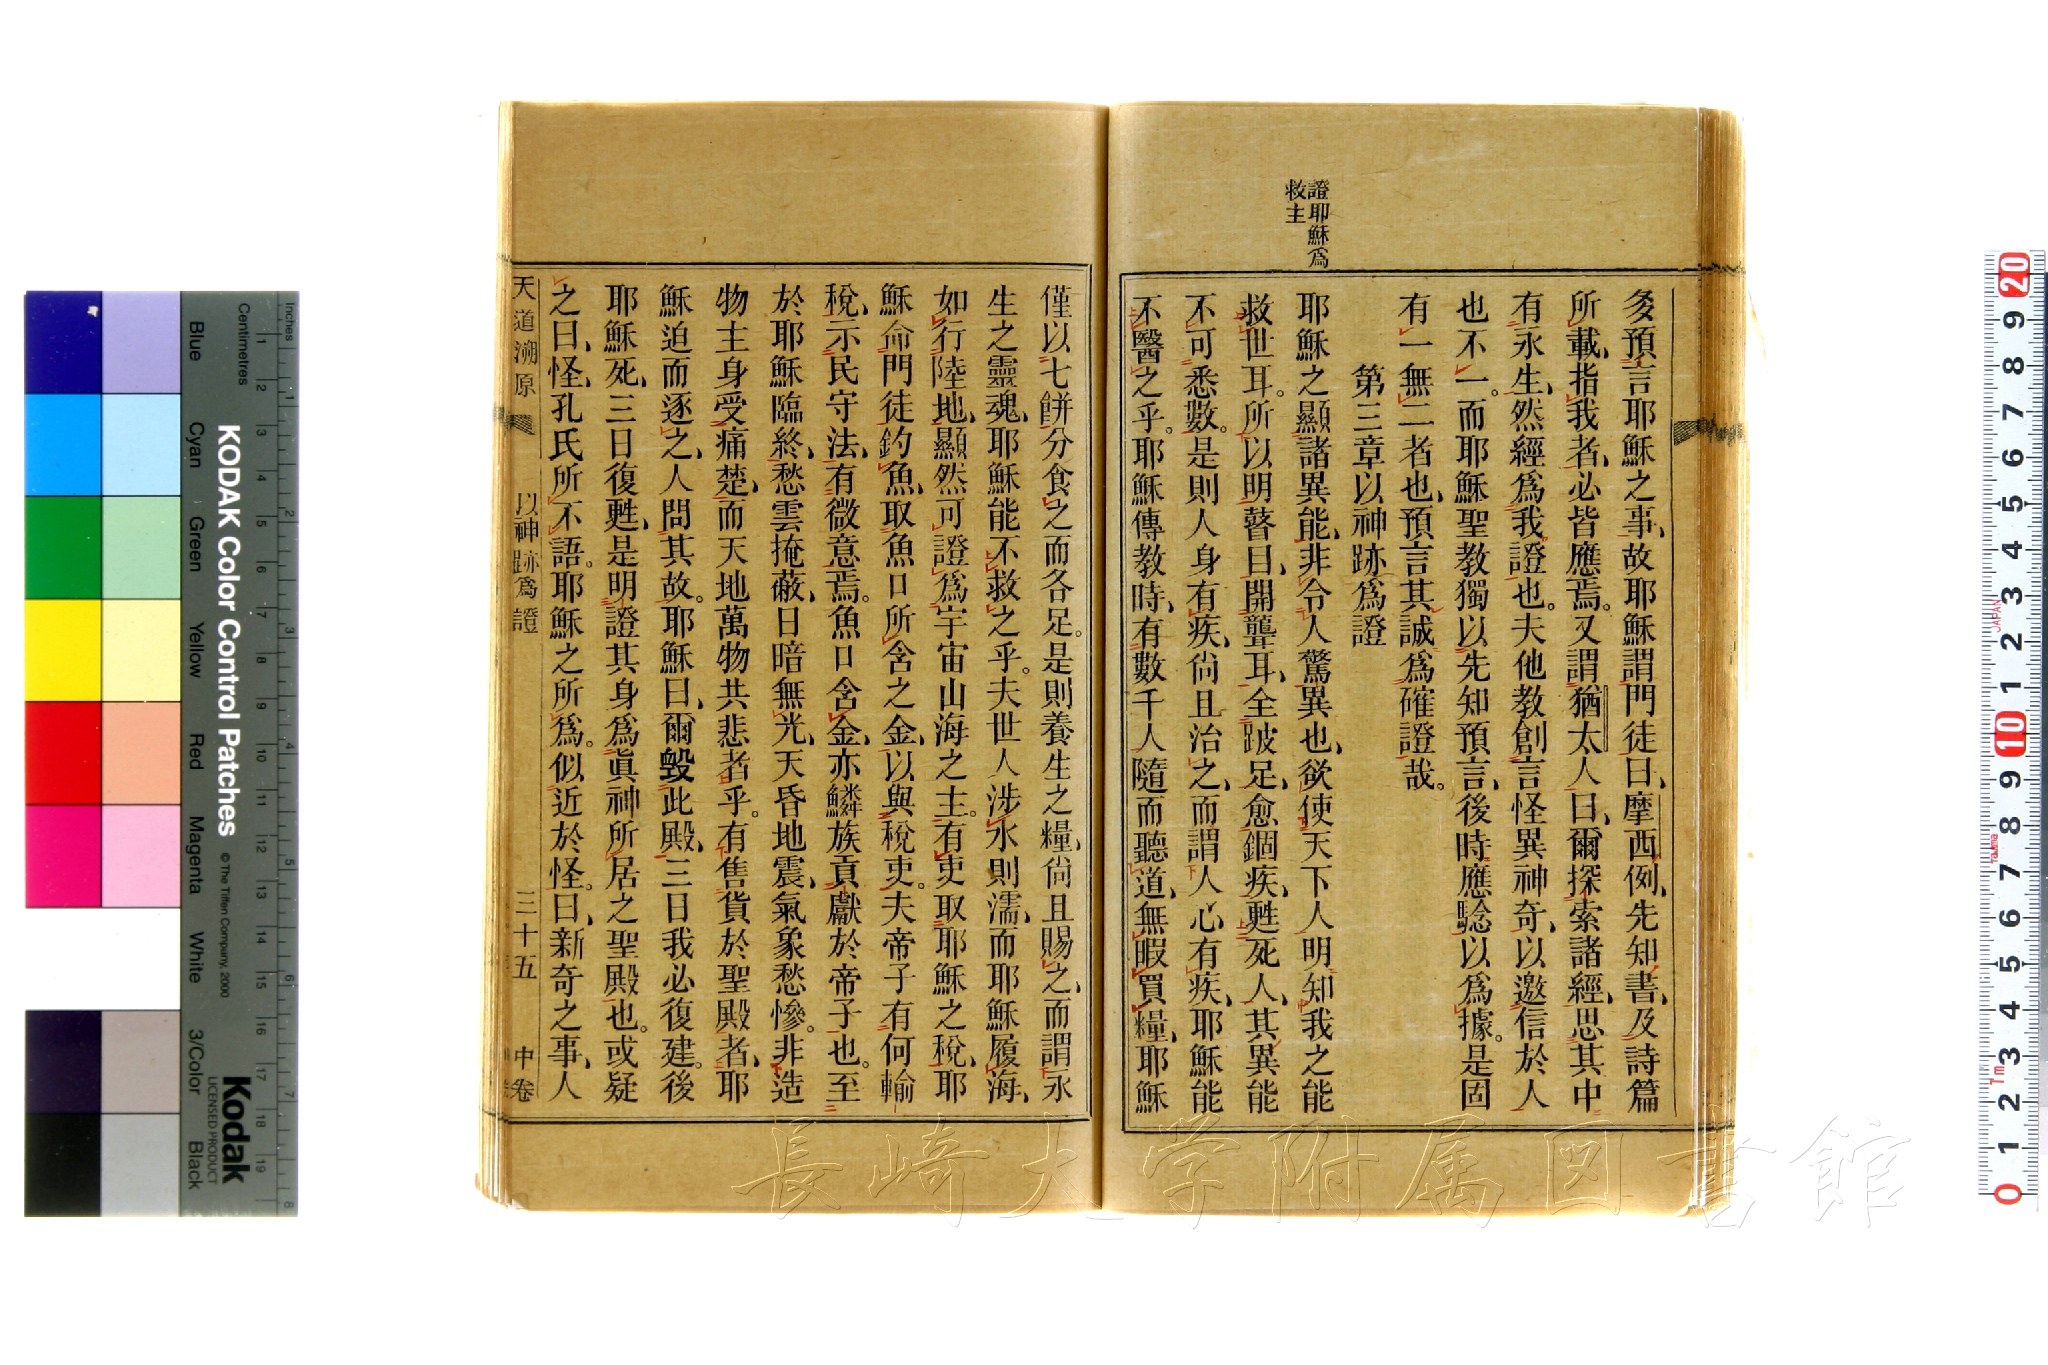 證耶穌爲
救主
多預言耶穌之事、故耶穌謂門徒曰、摩西例、先知書、及詩篇
所載、指我者、必皆應焉。又謂猶太人曰、爾探索諸經、思其中
有永生、然經爲我證也。夫他教創言怪異神奇、以邀信於人
也不一。而耶穌聖教獨以先知預言、後時應驗以爲據。是固
有一無二者也、預言其誠爲確證哉。
第三章以神跡爲證
耶穌之顯諸異能、非令人驚異也、欲使天下人明知我之能
救世耳。所以明瞽目、開聾耳、全跛足、愈錮疾、甦死人、其異能
不可悉數。是則人身有疾、尙且治之、而謂人心有疾、耶穌能
不醫之乎。耶穌傳教時、有數千人隨而聽道、無暇買糧、耶穌
僅以七餅分食之而各足。是則養生之糧、尙且賜之、而謂永
生之靈魂、耶穌能不救之乎。夫世人涉水則濡、而耶穌履海、
如行陸地、顯然可證爲宇宙山海之主。有吏取耶穌之稅、耶
穌命門徒釣魚、取魚口所含之金、以與稅吏。夫帝子有何輸
稅、示民守法、有微意焉。魚口含金、亦鱗族貢獻於帝子也。至
於耶穌臨終、愁雲掩蔽、日暗無光、天昏地震、氣象愁慘。非造
物主身受痛楚、而天地萬物共悲者乎。有售貨於聖殿者、耶
穌迫而逐之、人問其故。耶穌曰、爾毀此殿、三日我必復建。後
耶穌死、三日復甦、是明證其身爲眞神所居之聖殿也。或疑
之曰、怪、孔氏所不語。耶穌之所爲。似近於怪。曰、新奇之事、人
天道溯原 以神跡爲證 三十五 中卷
長崎大学附属図書館
Inches
Centimetres
Blue Cyan Green Yellow Red Magenta White 3/Color Black
KODAK Color Control Patches
© The Tiffen Company, 2000
Kodak
LICENSED PRODUCT
JAPAN
Tajima